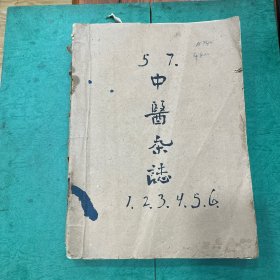 57.
中醫杂誌
1.2.3.4.5.6.